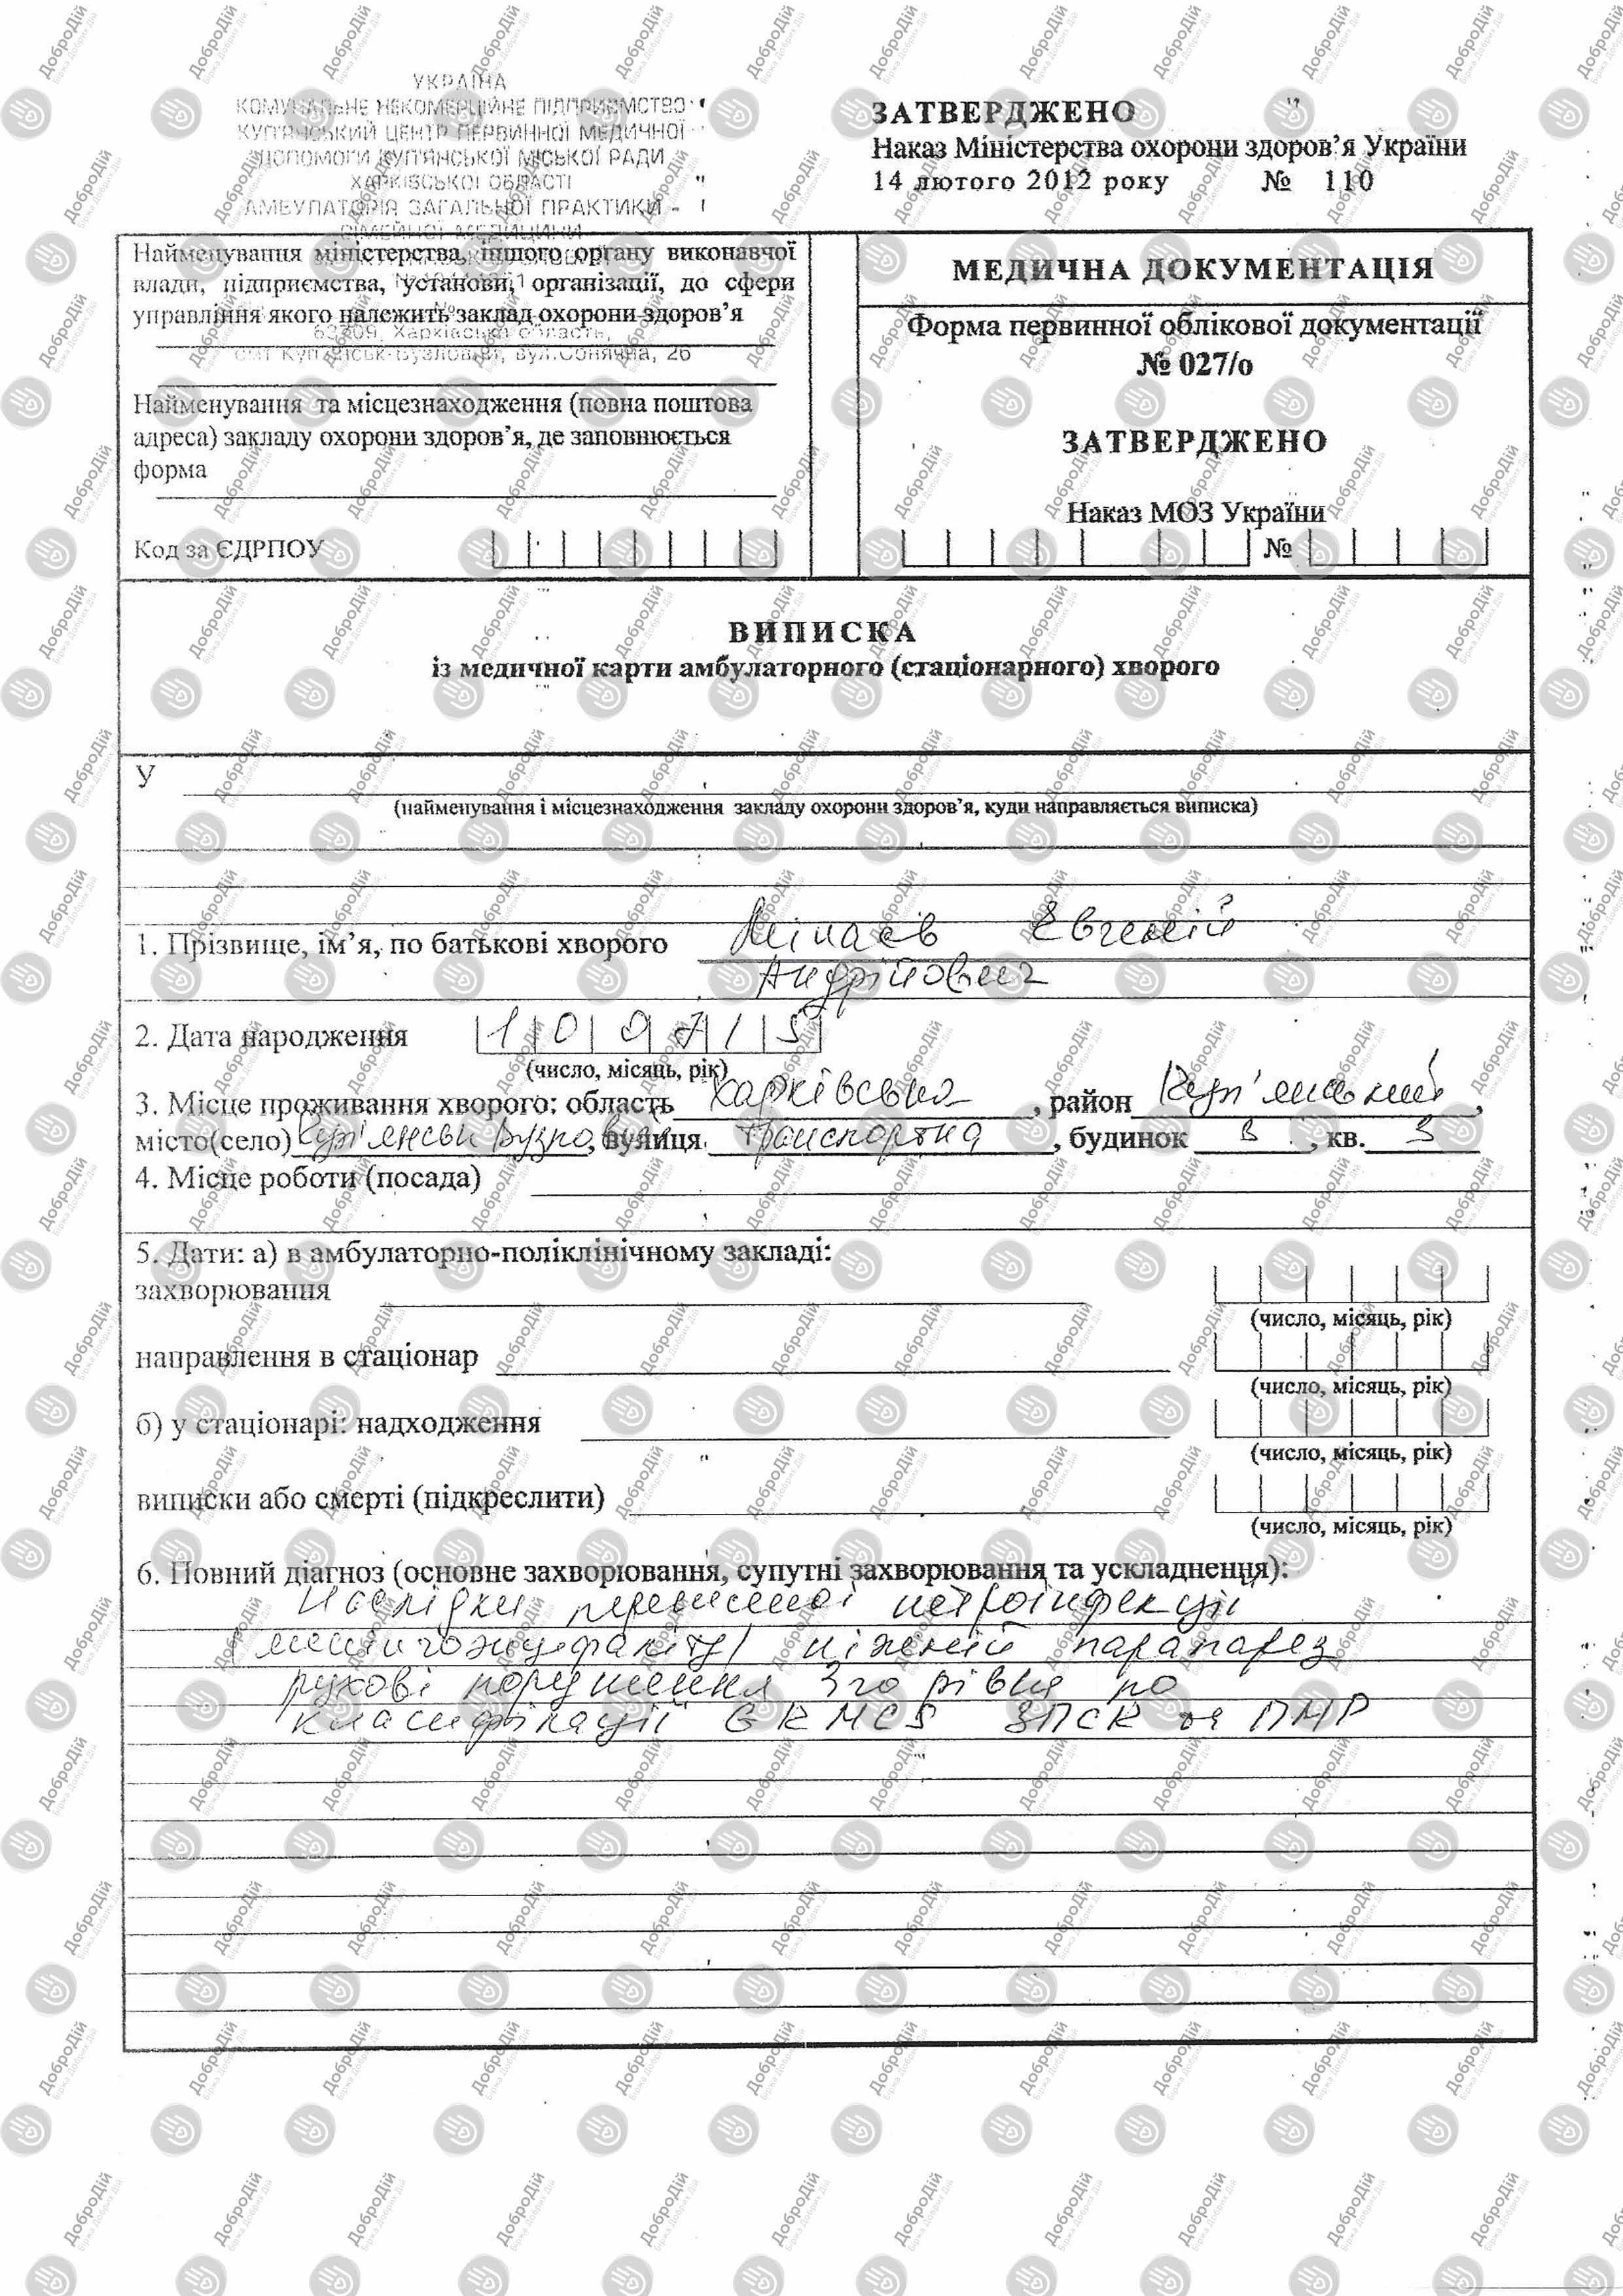 УКРАЇНА
КОМУНАЛЬНЕ НЕКОМЕРЦІЙНЕ ПІДПРИЄМСТВО
КУП'ЯНСЬКИЙ ЦЕНТР ПЕРВИННОЇ МЕДИЧНОЇ
ДОПОМОГИ КУП'ЯНСЬКОЇ МІСЬКОЇ РАДИ
ХАРКІВСЬКОЇ ОБЛАСТІ
АМБУЛАТОРІЯ ЗАГАЛЬНОЇ ПРАКТИКИ -
СІМЕЙНОЇ МЕДИЦИНИ
63709, Харківська область,
смт Куп'янськ-Вузловий, вул.Сонячна, 26
ЗАТВЕРДЖЕНО
Наказ Міністерства охорони здоров’я України
14 лютого 2012 року № 110
Найменування міністерства, іншого органу виконавчої
влади, підприємства, установи, організації, до сфери
управління якого належить заклад охорони здоров’я
Найменування та місцезнаходження (повна поштова
адреса) закладу охорони здоров’я, де заповнюється
форма
Код за ЄДРПОУ
МЕДИЧНА ДОКУМЕНТАЦІЯ
Форма первинної облікової документації
№ 027/о
ЗАТВЕРДЖЕНО
Наказ МОЗ України
№
ВИПИСКА
із медичної карти амбулаторного (стаціонарного) хворого
У
(найменування і місцезнаходження закладу охорони здоров’я, куди направляється виписка)
1. Прізвище, ім’я, по батькові хворого Мінаєв Євгеній
Андрійович
2. Дата народження 1 0 0 7 1 5
(число, місяць, рік)
3. Місце проживання хворого: область Харківська, район Куп'янський,
місто(село) Куп'янськ Вузловий, вулиця Транспортна, будинок 3, кв. 3
4. Місце роботи (посада)
5. Дати: а) в амбулаторно-поліклінічному закладі:
захворювання
(число, місяць, рік)
направлення в стаціонар
(число, місяць, рік)
б) у стаціонарі: надходження
(число, місяць, рік)
виписки або смерті (підкреслити)
(число, місяць, рік)
6. Повний діагноз (основне захворювання, супутні захворювання та ускладнення):
Наслідки перенесеної нейроінфекції
(менінгоенцефаліту) нижній парапарез
рухові порушення 3го рівня по
класифікації GKMCS ЗПСК та ПМР
ДоброДій
Біржа Добрих Дій